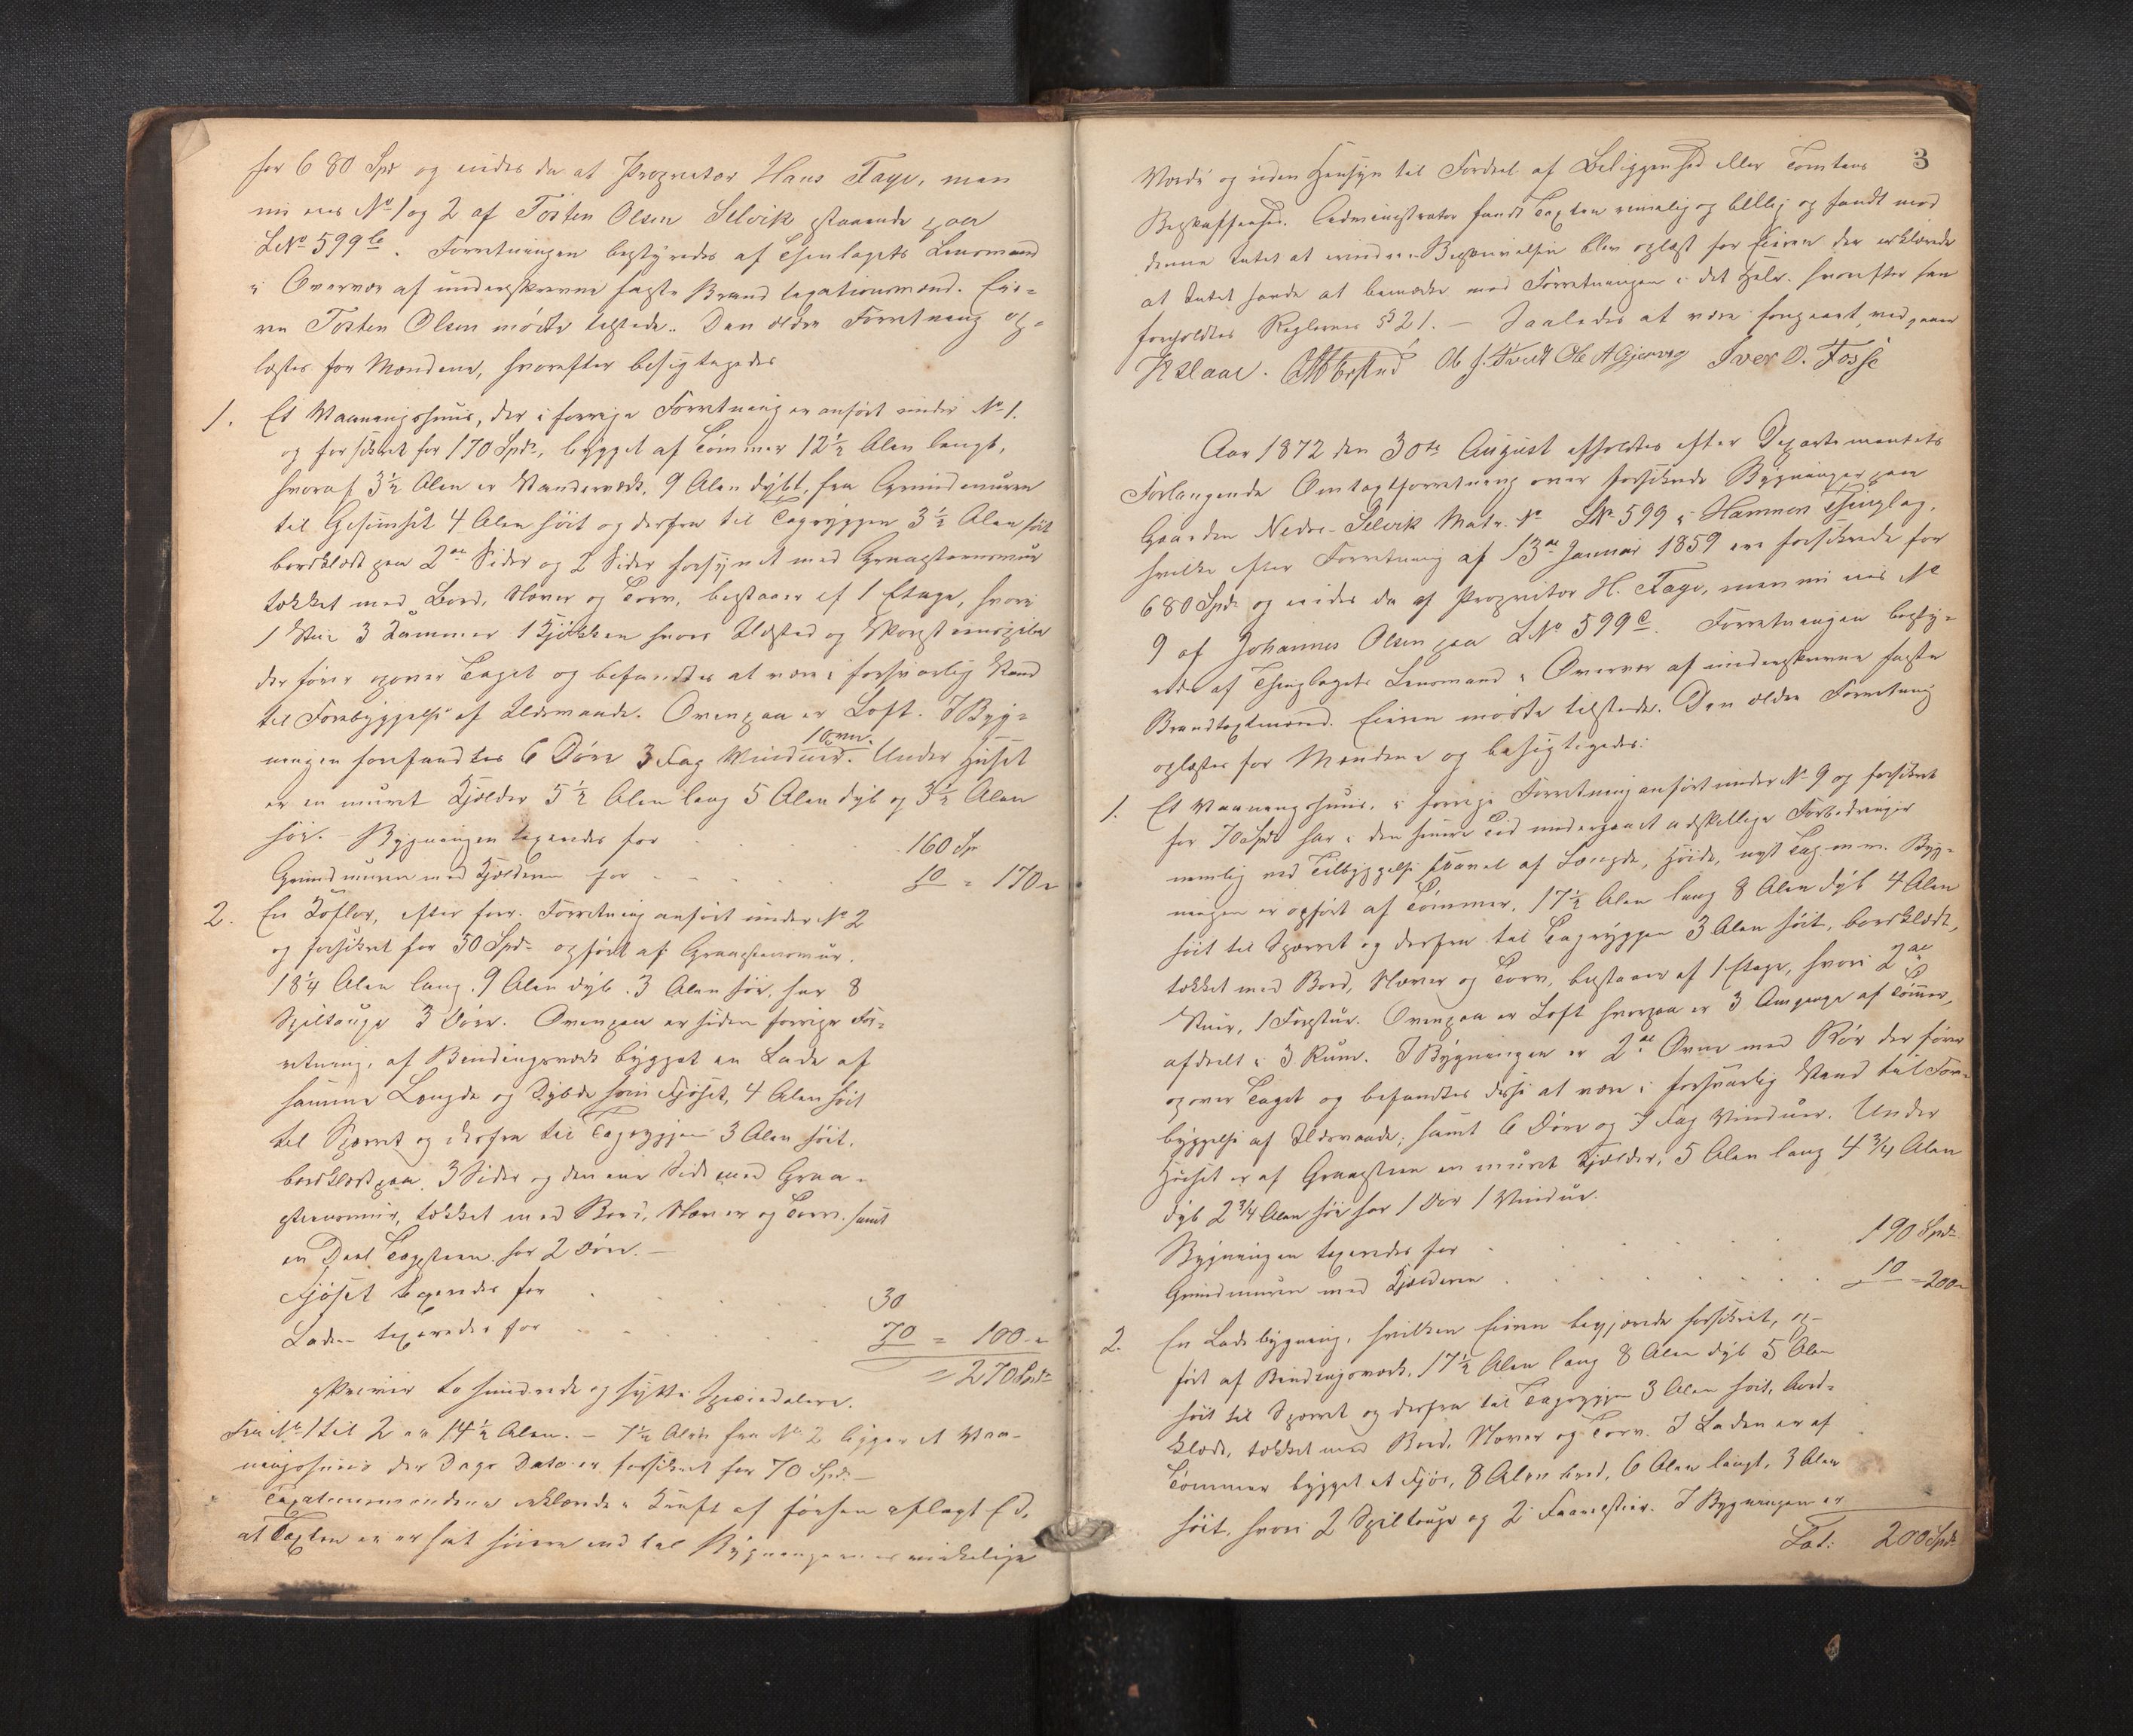 for 680 Spd og eiedes da af Proprietær Hans Fage, men
nu eies No 1 og 2 af Tosten Olsen Selvik staaende paa
LNo 599b. Forretningen bestyredes af Thinlagets Lensmand
i Overvær af underskrevne faste Brandtaxationsmænd. Eie-
ren Tosten Olsen mødte tilstede. Den ældre Forretning op-
læstes for Mændene, hvorefter besigtigedes
1. Et Vaaningshuus, der i forrige Forretning er anført under No 1.
og forsikret for 170 Spd, bygget af Tømmer 12½ Alen langt,
hvoraf 3½ Alen er Bindeværk, 9 Alen dybt, fra Grundmuren
til Gesimset 4 Alen høit og derfra til Tagryggen 3½ Alen høit
bordklædt paa 2de Sider og 2 Sider forsynet med Graasteensmuur
tækket med Bord, Næver og Torv, bestaaer af 1 Etage, hvori
1 Stue 3 Kammer 1 Kjøkken hvori Ildsted og Skorsteenspibe
der fører op over Taget og befandtes at være i forsvarlig Stand
til Forebyggelse af Ildsvaade. Ovenpaa er Loft. I Byg-
1 Ovn.
ningen forefandtes 6 Døre 3 Fag Vinduer. Under Huset
er en muret Kjelder 5½ Alen lang 5 Alen dyb og 3½ Alen
høi. – Bygningen taxeredes for 160 Sp
Grundmuren med Kjelderen for 10 = 170 "
2. En Koflor, efter forr. Forretning anført under No 2
og forsikret for 50 Spd opført af Graasteensmuur.
18¼ Alen lang. 9 Alen dyb. 3 Alen høi, har 8
Spiltouge 3 Døre. Ovenpaa er siden forrige For-
retning, af Bindingsværk bygget en Lade af
samme Længde og Dybde som Fjøset, 4 Alen høit
til Sparret og derfra til Tagryggen 3 Alen høit.
bordklædt paa 3 Sider og den ene Side med Graa-
steensmuur, tækket med Bord, Næver og Torv samt
en Deel Tagsteen har 2 Døre. –
Fjøset taxeredes for 30
Laden taxeredes for 70 = 100 "
= 270 Spd
skriver to hundrede og sytti Speciedalere.
Fra No 1 til 2 er 14½ Alen. – 7½ Alen fra No 2 ligger et Vaa-
ningshuus der Dags Dato er forsikret for 70 Spd –
Taxationsmændene erklærede i Kraft af førhen aflagt Ed,
at Taxten ei er sat høiere end til Bygningernes virkelige
3
Værdi og uden Hensyn til Fordeel af Beliggenhed eller Tomtens
Beskaffenhed. Administrator fandt Taxten rimelig og billig og fandt mod
denne Intet at erindre. Beskrivelsen blev oplæst for Eieren der erklærede
at Intet havde at bemærke mod Forretningen i det Hele. hvorefter han
foreholdtes Reglernes § 21. – Saaledes at være foregaaet, vedgaaer
Ole J. Tvedt Ole A Gjerveg Iver O. Fosse
Aar 1872 den 30te August afholdtes efter Departementets
Forlangende Omtaxtforretning over forsikrede Bygninger paa
Gaarden Nedre-Selvik Matr. No LNo 599 i Hamnen Thinglag,
hvilke efter Forretning af 13de Januar 1859 ere forsikrede for
680 Spd og eiedes da af Proprietær H. Fage, men nu eies No
9 af Johannes Olsen paa LNo 599c. Forretningen besty-
redes af Thinglagets Lensmand i Overvær af underskrevne faste
Brandtaxtmænd. Eieren mødte tilstede. Den ældre Forretning
oplæstes for Mændene og besigtigedes:
1. Et Vaaningshuus, i forrige Forretning anført under No 9 og forsikret
for 70 Spd har i den senere Tid undergaaet adskellige Forbedringer
nemlig ved Tilbyggelse saavel af Længde, Høide, nyt Tag m. m. Byg-
ningen er opført af Tømmer, 17½ Alen lang 8 Alen dyb 4 Alen
høit til Sparret og derfra til Tagryggen 3 Alen høit, bordklædt,
tækket med Bord, Næver og Torv, bestaaer af 1 Etage, hvori 2de
Stuer, 1 Forstue. Ovenpaa er Loft hvorpaa er 3 Omgange af Tømmer,
afdeelt i 3 Rum. I Bygningen er 2de Ovne med Rør der fører
op over Taget og befandtes disse at være i forsvarlig Stand til Fore-
byggelse af Ildsvaade; samt 6 Døre og 7 Fag Vinduer. Under
Huset er af Graasteen en muret Kjelder, 5 Alen lang 4¾ Alen
dyb 2¾ Alen høi har 1 Dør 1 Vindue.
Bygningen taxeredes for 190 Spd
Grundmuren med Kjelderen 10 = 200 "
2. En Ladebygning, hvilken Eieren begjærede forsikret, op-
ført af Bindingsværk, 17½ Alen lang 8 Alen dyb 5 Alen
høit til Sparret og derfra til Tagryggen 3 Alen høit, bord-
klædt, tækket med Bord, Næver og Torv. I Laden er af
Tømmer bygget et Fjøs, 8 Alen bred, 6 Alen langt, 3 Alen
høit, hvori 2 Spiltouge og 2 Faarestier. I Bygningen er
Lat. 200 Spd